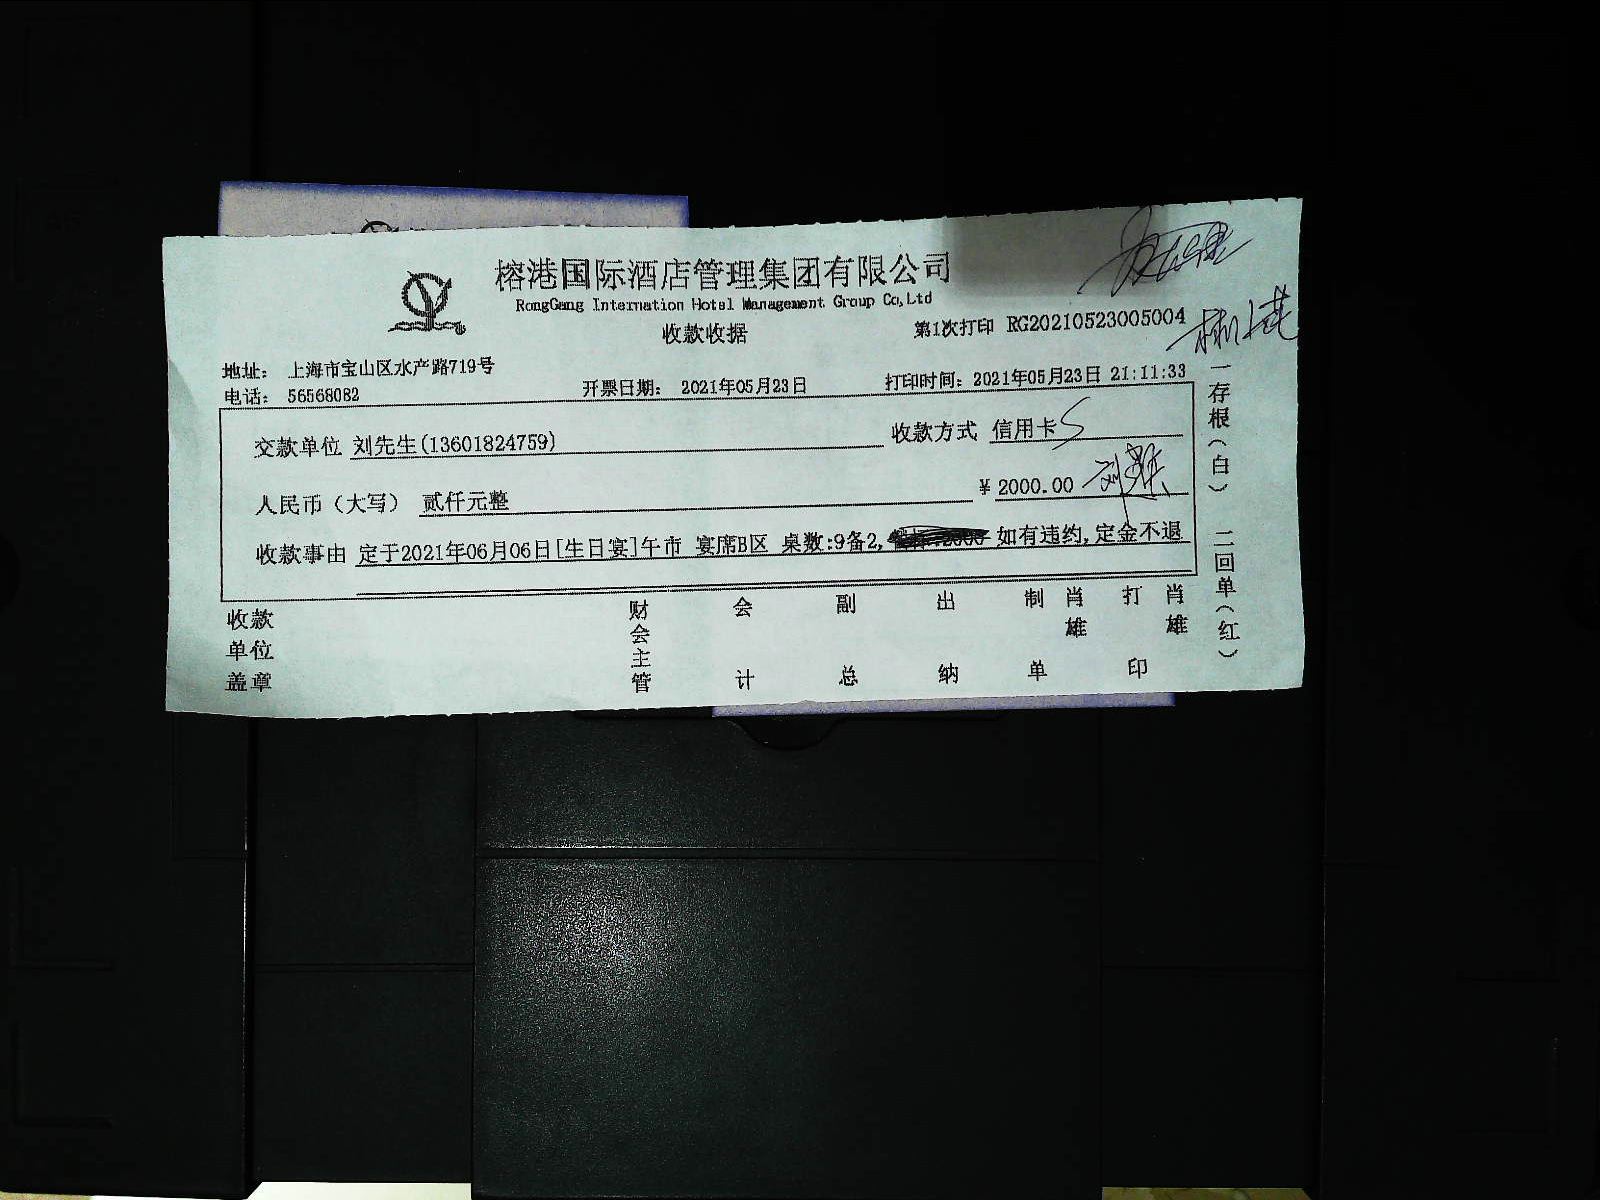 榕港国际酒店管理集团有限公司
RongGang Internation Hotel Management Group Co,Ltd
收款收据
第1次打印 RG20210523005004
地址： 上海市宝山区水产路719号
电话： 56568082
开票日期： 2021年05月23日
打印时间：2021年05月23日 21:11:33
交款单位 刘先生(13601824759)
收款方式 信用卡
人民币（大写） 贰仟元整
¥ 2000.00
收款事由 定于2021年06月06日[生日宴]午市 宴席B区 桌数:9备2, 如有违约,定金不退
一存根（白） 二回单（红）
收款单位盖章
财会主管
会计
副总
出纳
制单
肖雄
打印
肖雄